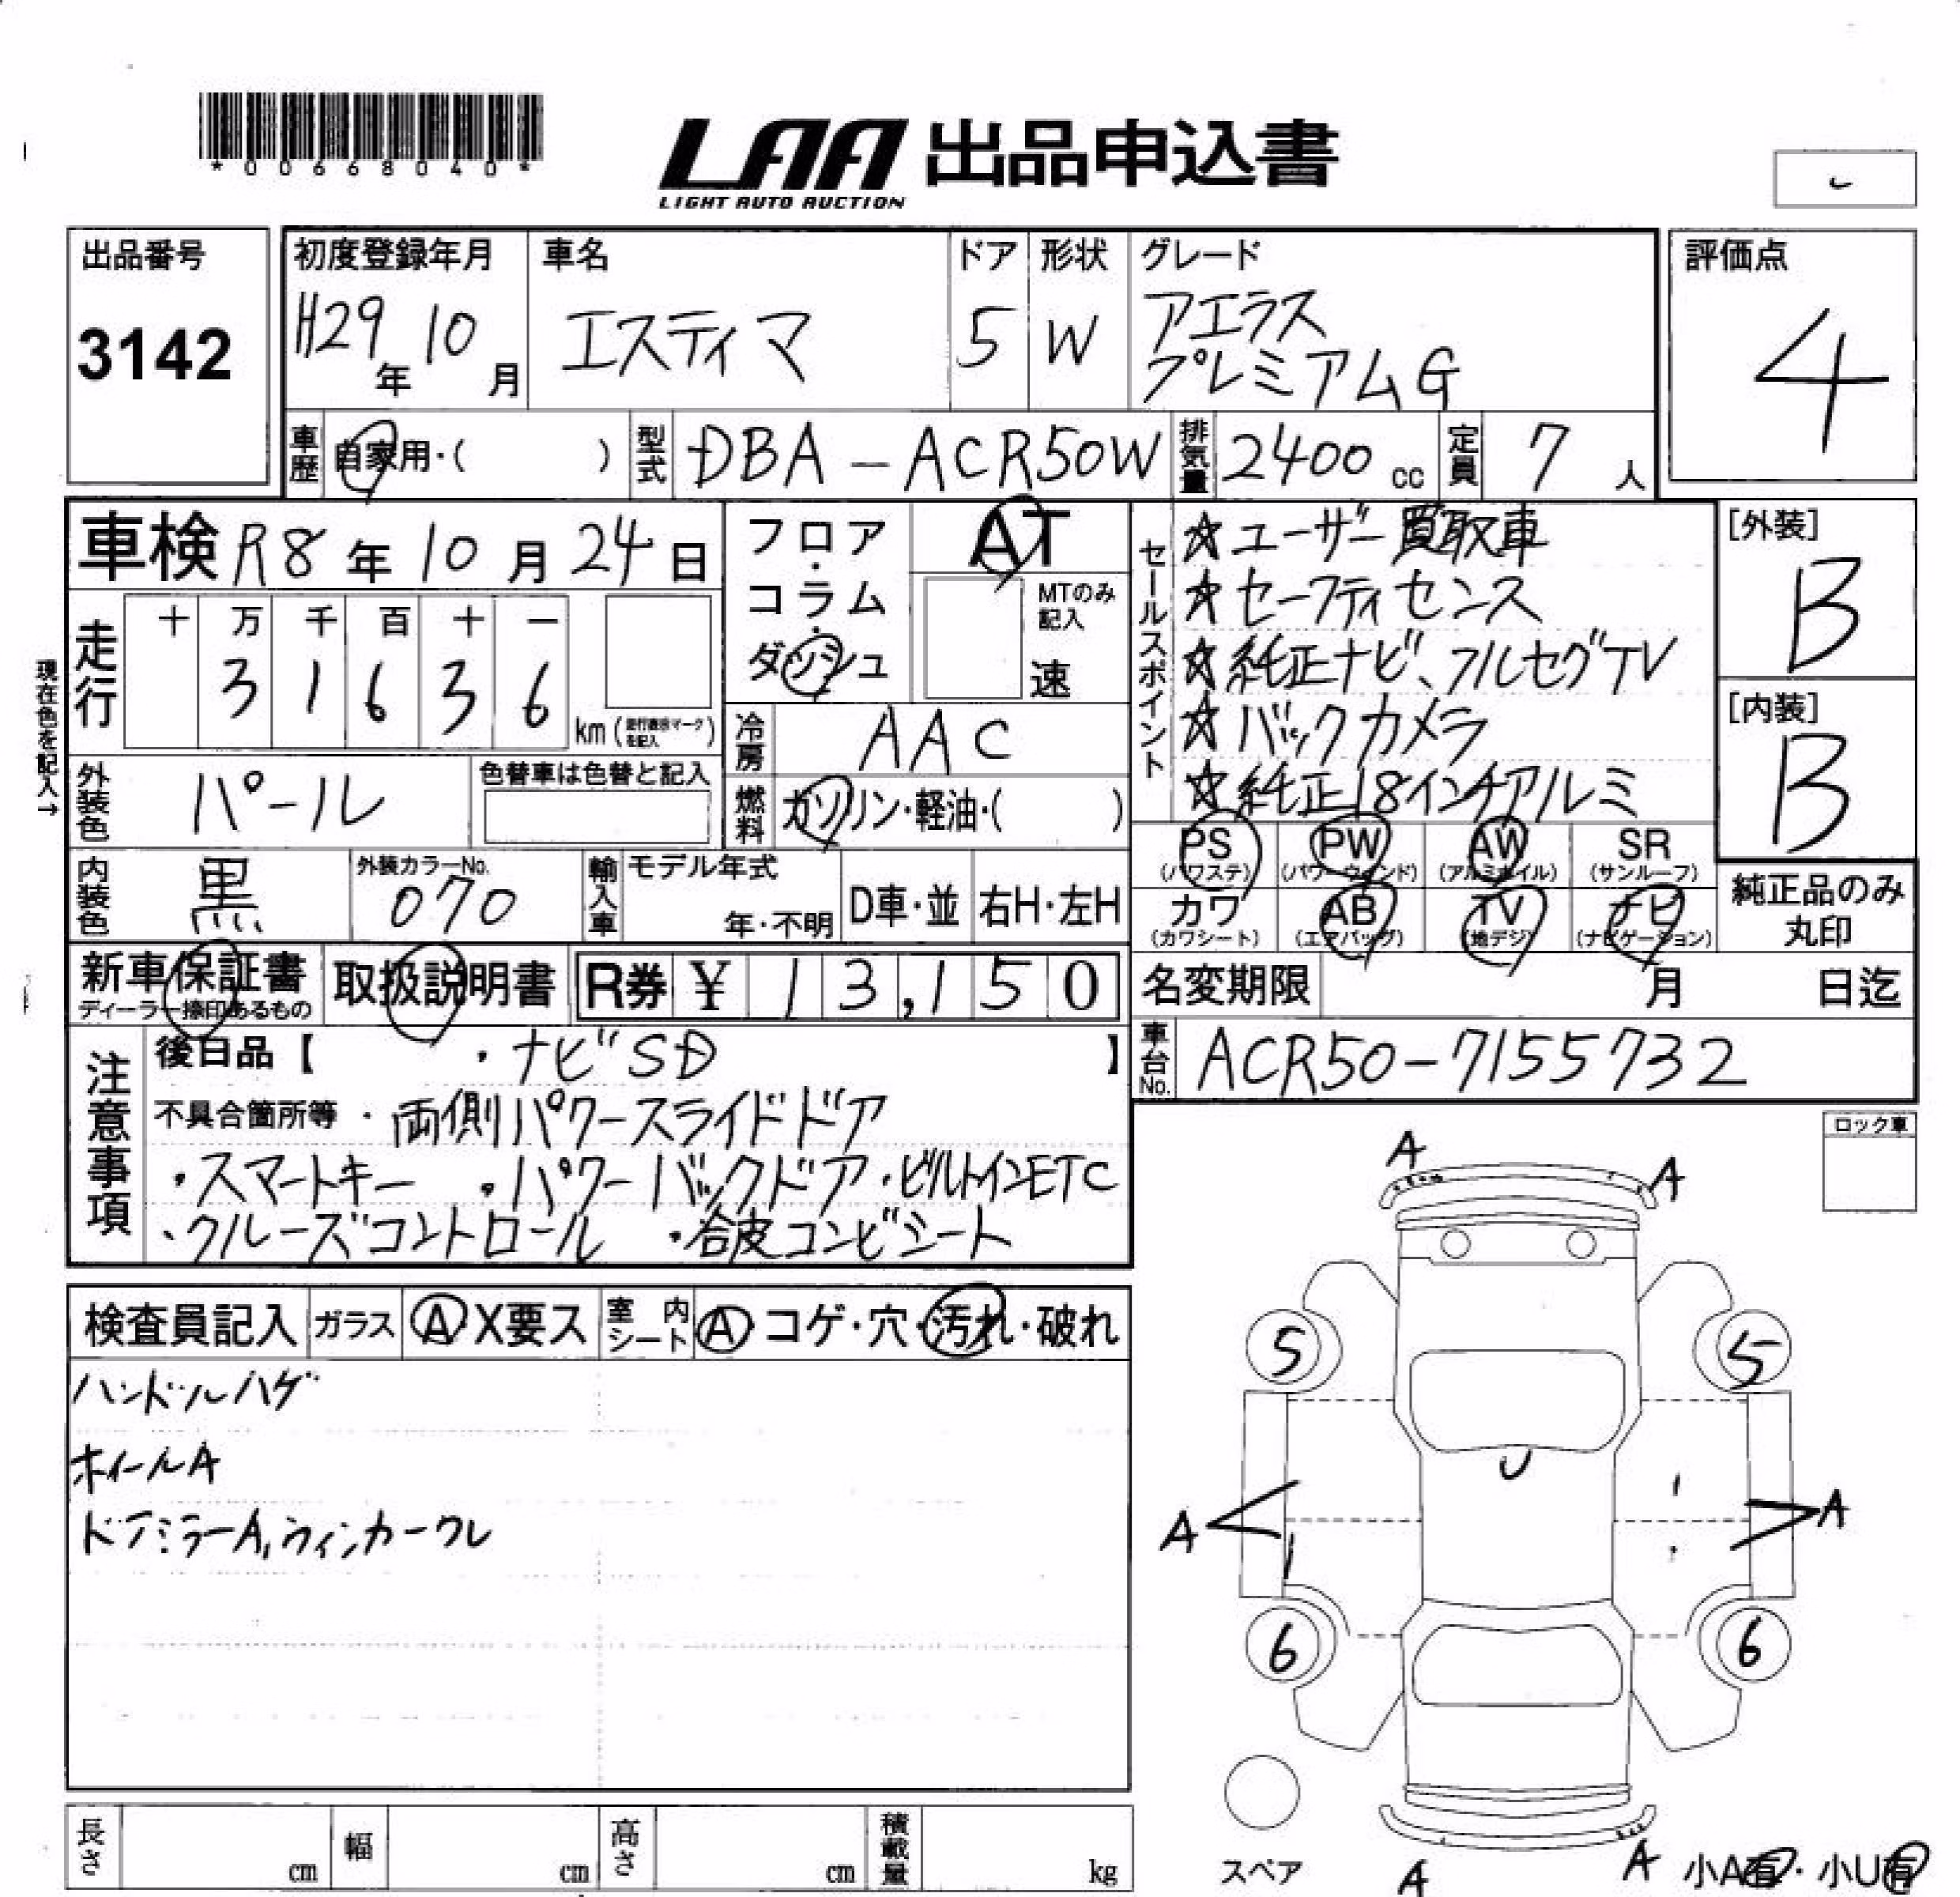 *00668040*
LAA 出品申込書
LIGHT AUTO AUCTION
出品番号
3142
初度登録年月
H29年10月
車名
エスティマ
ドア
5
形状
W
グレード
アエラス
プレミアムG
評価点
4
車歴 自家用・( )
型式 DBA-ACR50W
排気量 2400 cc
定員 7 人
車検 R8年10月24日
フロア・コラム・ダッシュ
AT
MTのみ記入
速
セールスポイント
☆ユーザー買取車
☆セーフティセンス
☆純正ナビ、フルセグTV
☆バックカメラ
☆純正18インチアルミ
[外装]
B
[内装]
B
現在色を記入→
走行
十 万 千 百 十 一
3 1 6 3 6
km (走行表示マークを記入)
冷房 AAC
外装色 パール
色替車は色替と記入
燃料 ガソリン・軽油・( )
PS (パワステ)
PW (パワーウインド)
AW (アルミホイル)
SR (サンルーフ)
内装色 黒
外装カラーNo. 070
輸入車
モデル年式
年・不明
D車・並
右H・左H
カワ (カワシート)
AB (エアバッグ)
TV (地デジ)
ナビ (ナビゲーション)
純正品のみ丸印
新車保証書
ディーラー捺印あるもの
取扱説明書
R券 ¥ 13,150
名変期限 月 日迄
車台No. ACR50-7155732
注意事項
後日品【 ・ナビSD 】
不具合箇所等 ・両側パワースライドドア
・スマートキー ・パワーバックドア ・ビルトインETC
・クルーズコントロール ・合皮コンビシート
ロック車
検査員記入
ガラス
A X要ス
室内シート
A コゲ・穴・汚れ・破れ
ハンドルハゲ
ホイールA
ドアミラーA,ウィンカーワレ
A
A
5
5
U
A
A
6
6
スペア
A
A
小A有・小U有
長さ cm
幅 cm
高さ cm
積載量 kg